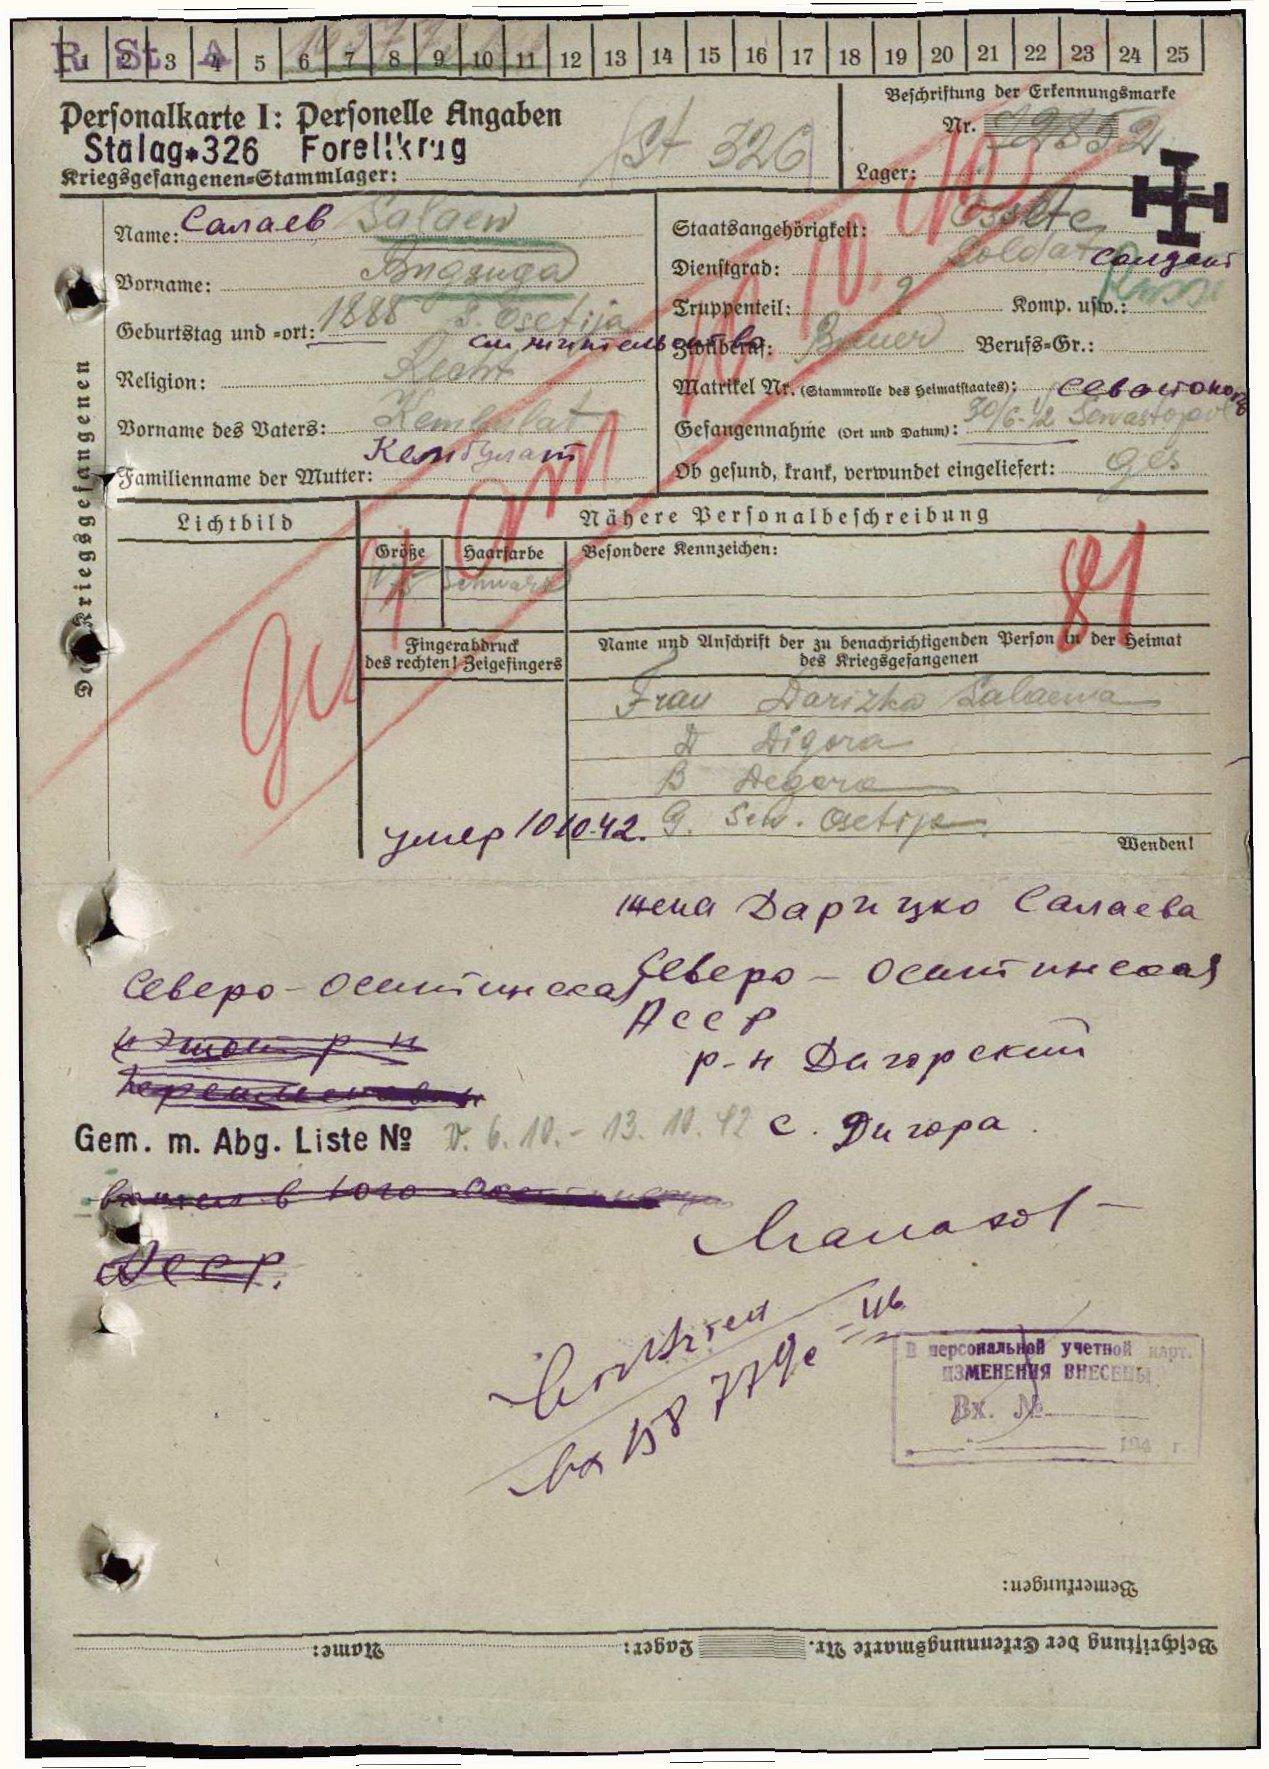 R. St. A
1 2 3 4 5 6 7 8 9 10 11 12 13 14 15 16 17 18 19 20 21 22 23 24 25
Personalkarte I: Personelle Angaben
Stalag 326 Forellkrug
Kriegsgefangenen=Stammlager: St 326
Beschriftung der Erkennungsmarke
Nr.
Lager:
Des Kriegsgefangenen
Name: Салаев Salaew
Vorname:
Geburtstag und =ort: 1888 S. Osetija
Religion:
Vorname des Vaters: Kembulat
Кембулат
Familienname der Mutter:
Staatsangehörigkeit: Ossete
Dienstgrad: Soldat солдат
Russe
Truppenteil: ? Komp. usw.:
Zivilberuf: Bauer Berufs=Gr.:
Matrikel Nr. (Stammrolle des Heimatstaates): Севастополь
Gefangennahme (Ort und Datum): 30/6.42 Sewastopol
Ob gesund, krank, verwundet eingeliefert: ges
gest. am 10. 10. 42
81
Lichtbild
Nähere Personalbeschreibung
Größe Haarfarbe Besondere Kennzeichen:
schwarz
Fingerabdruck
des rechten! Zeigefingers
Name und Anschrift der zu benachrichtigenden Person in der Heimat
des Kriegsgefangenen
Frau Darizko Salaewa
D Digora
B Degora
G. Sew. Osetija
умер 10 10.42.
Wenden!
жена Дарицко Салаева
Северо - Осетинская
Северо - Осетинская
АССР
р-н Дигорский
Gem. m. Abg. Liste № v. 6. 10. - 13. 10. 42
с. Дигора
АССР.
Вх 158 779с
В персональной учетной карт.
ИЗМЕНЕНИЯ ВНЕСЕНЫ
Вх. №
194 г.
Bemerkungen:
Beschriftung der Erkennungsmarke Nr. Lager: Name: